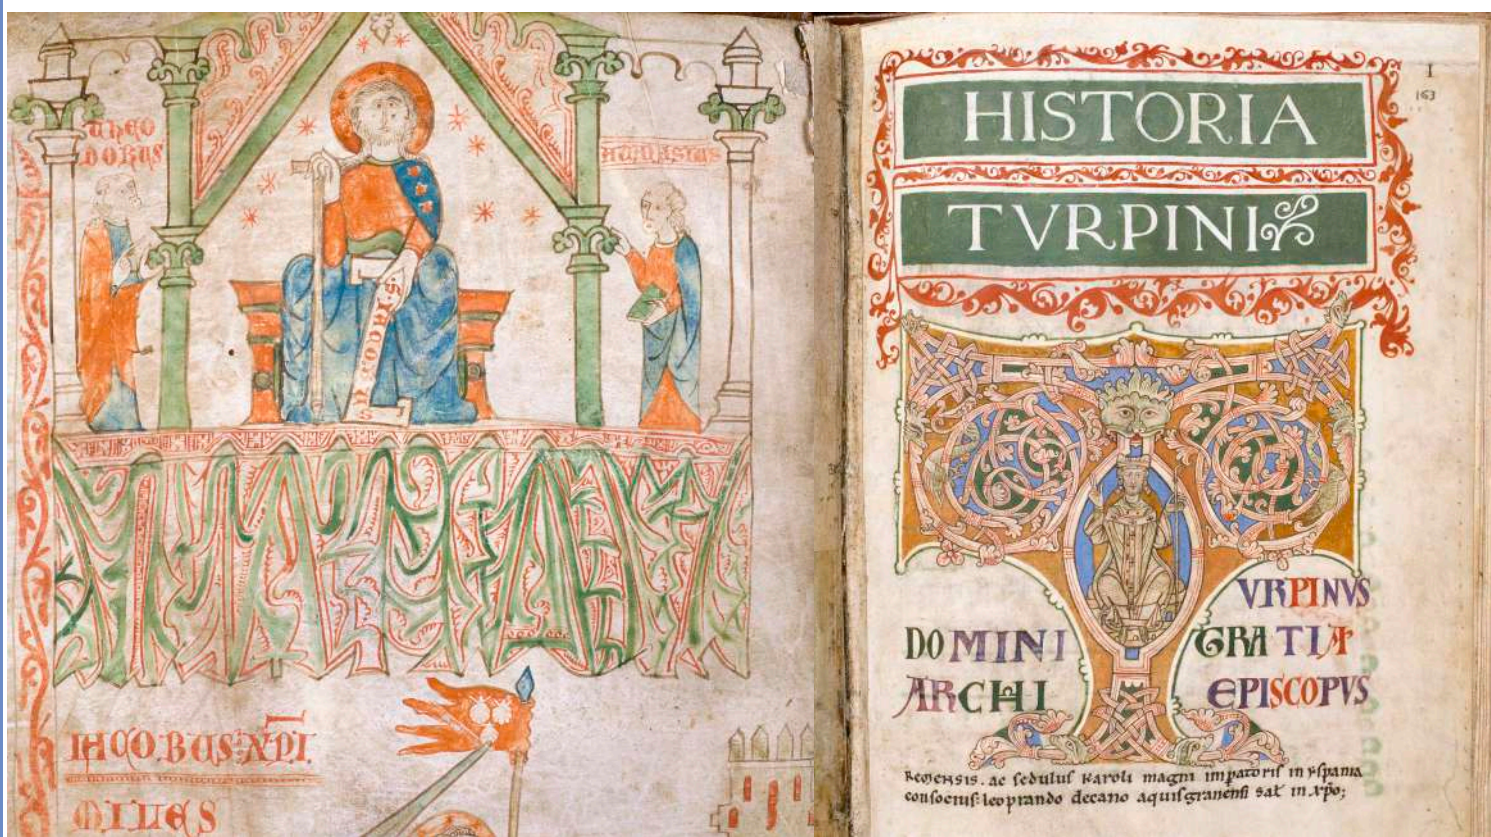 THEO
DORUS
ATHANASIUS
S IACOBI·S·
IACOBUS·XPI
MILES
I
163
HISTORIA
TVRPINI
TVRPINVS
DOMINI GRATIA
ARCHI EPISCOPVS
Remensis. ac sedulus karoli magni imꝑatoris in yspania
consocius: leoprando decano aquisgranensi sal̄ in xp̄o;